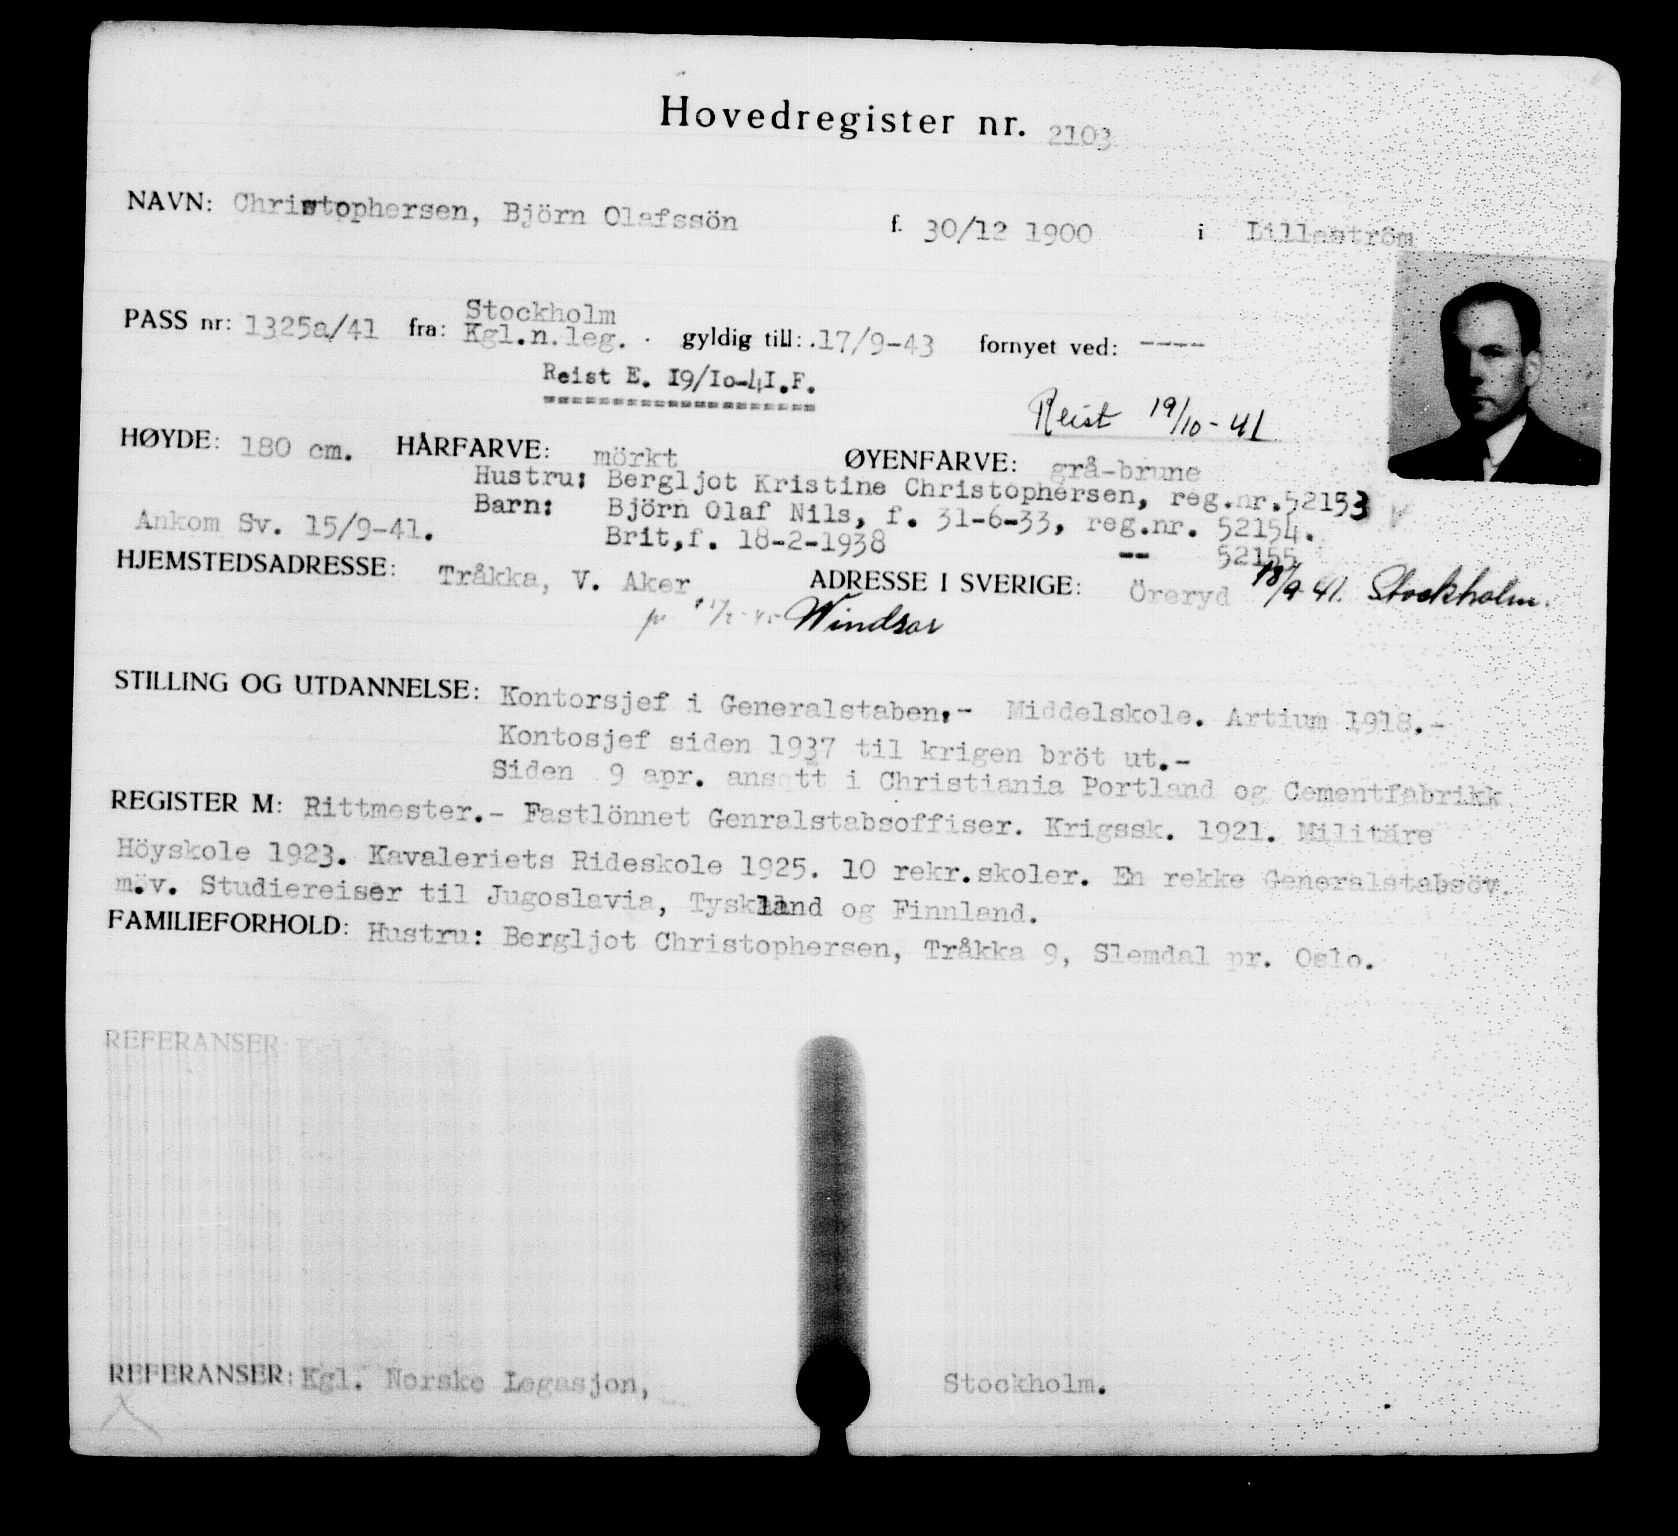 Hovedregister nr. 2103
NAVN: Christophersen, Björn Olafssön f. 30/12 1900 i Lilleström
Stockholm
PASS nr: 1325a/41 fra: Kgl.n.leg. gyldig till: .17/9-43 fornyet ved: ----
Reist E. 19/10-41.F.
Reist 19/10-41
HØYDE: 180 cm. HÅRFARVE: mörkt ØYENFARVE: grå-brune
Hustru: Bergljot Kristine Christophersen, reg.nr.52153
Barn: Björn Olaf Nils, f. 31-6-33, reg.nr. 52154.
Ankom Sv. 15/9-41. Brit,f. 18-2-1938 -- 52155
HJEMSTEDSADRESSE: Tråkka, V. Aker ADRESSE I SVERIGE: Öreryd 18/9 41. Stockholm.
Windsor
STILLING OG UTDANNELSE: Kontorsjef i Generalstaben.- Middelskole. Artium 1918.-
Kontosjef siden 1937 til krigen bröt ut.-
Siden 9 apr. ansatt i Christiania Portland og Cementfabrikk
REGISTER M: Rittmester.- Fastlönnet Genralstabsoffiser. Krigssk. 1921. Militäre
Höyskole 1923. Kavaleriets Rideskole 1925. 10 rekr.skoler. En rekke Generalstabsöv.
m.v. Studiereiser til Jugoslavia, Tyskland og Finnland.
FAMILIEFORHOLD: Hustru: Bergljot Christophersen, Tråkka 9, Slemdal pr. Oslo.
REFERANSER: Kgl. Norske Legasjon
REFERANSER: Kgl. Norske Legasjon, Stockholm.